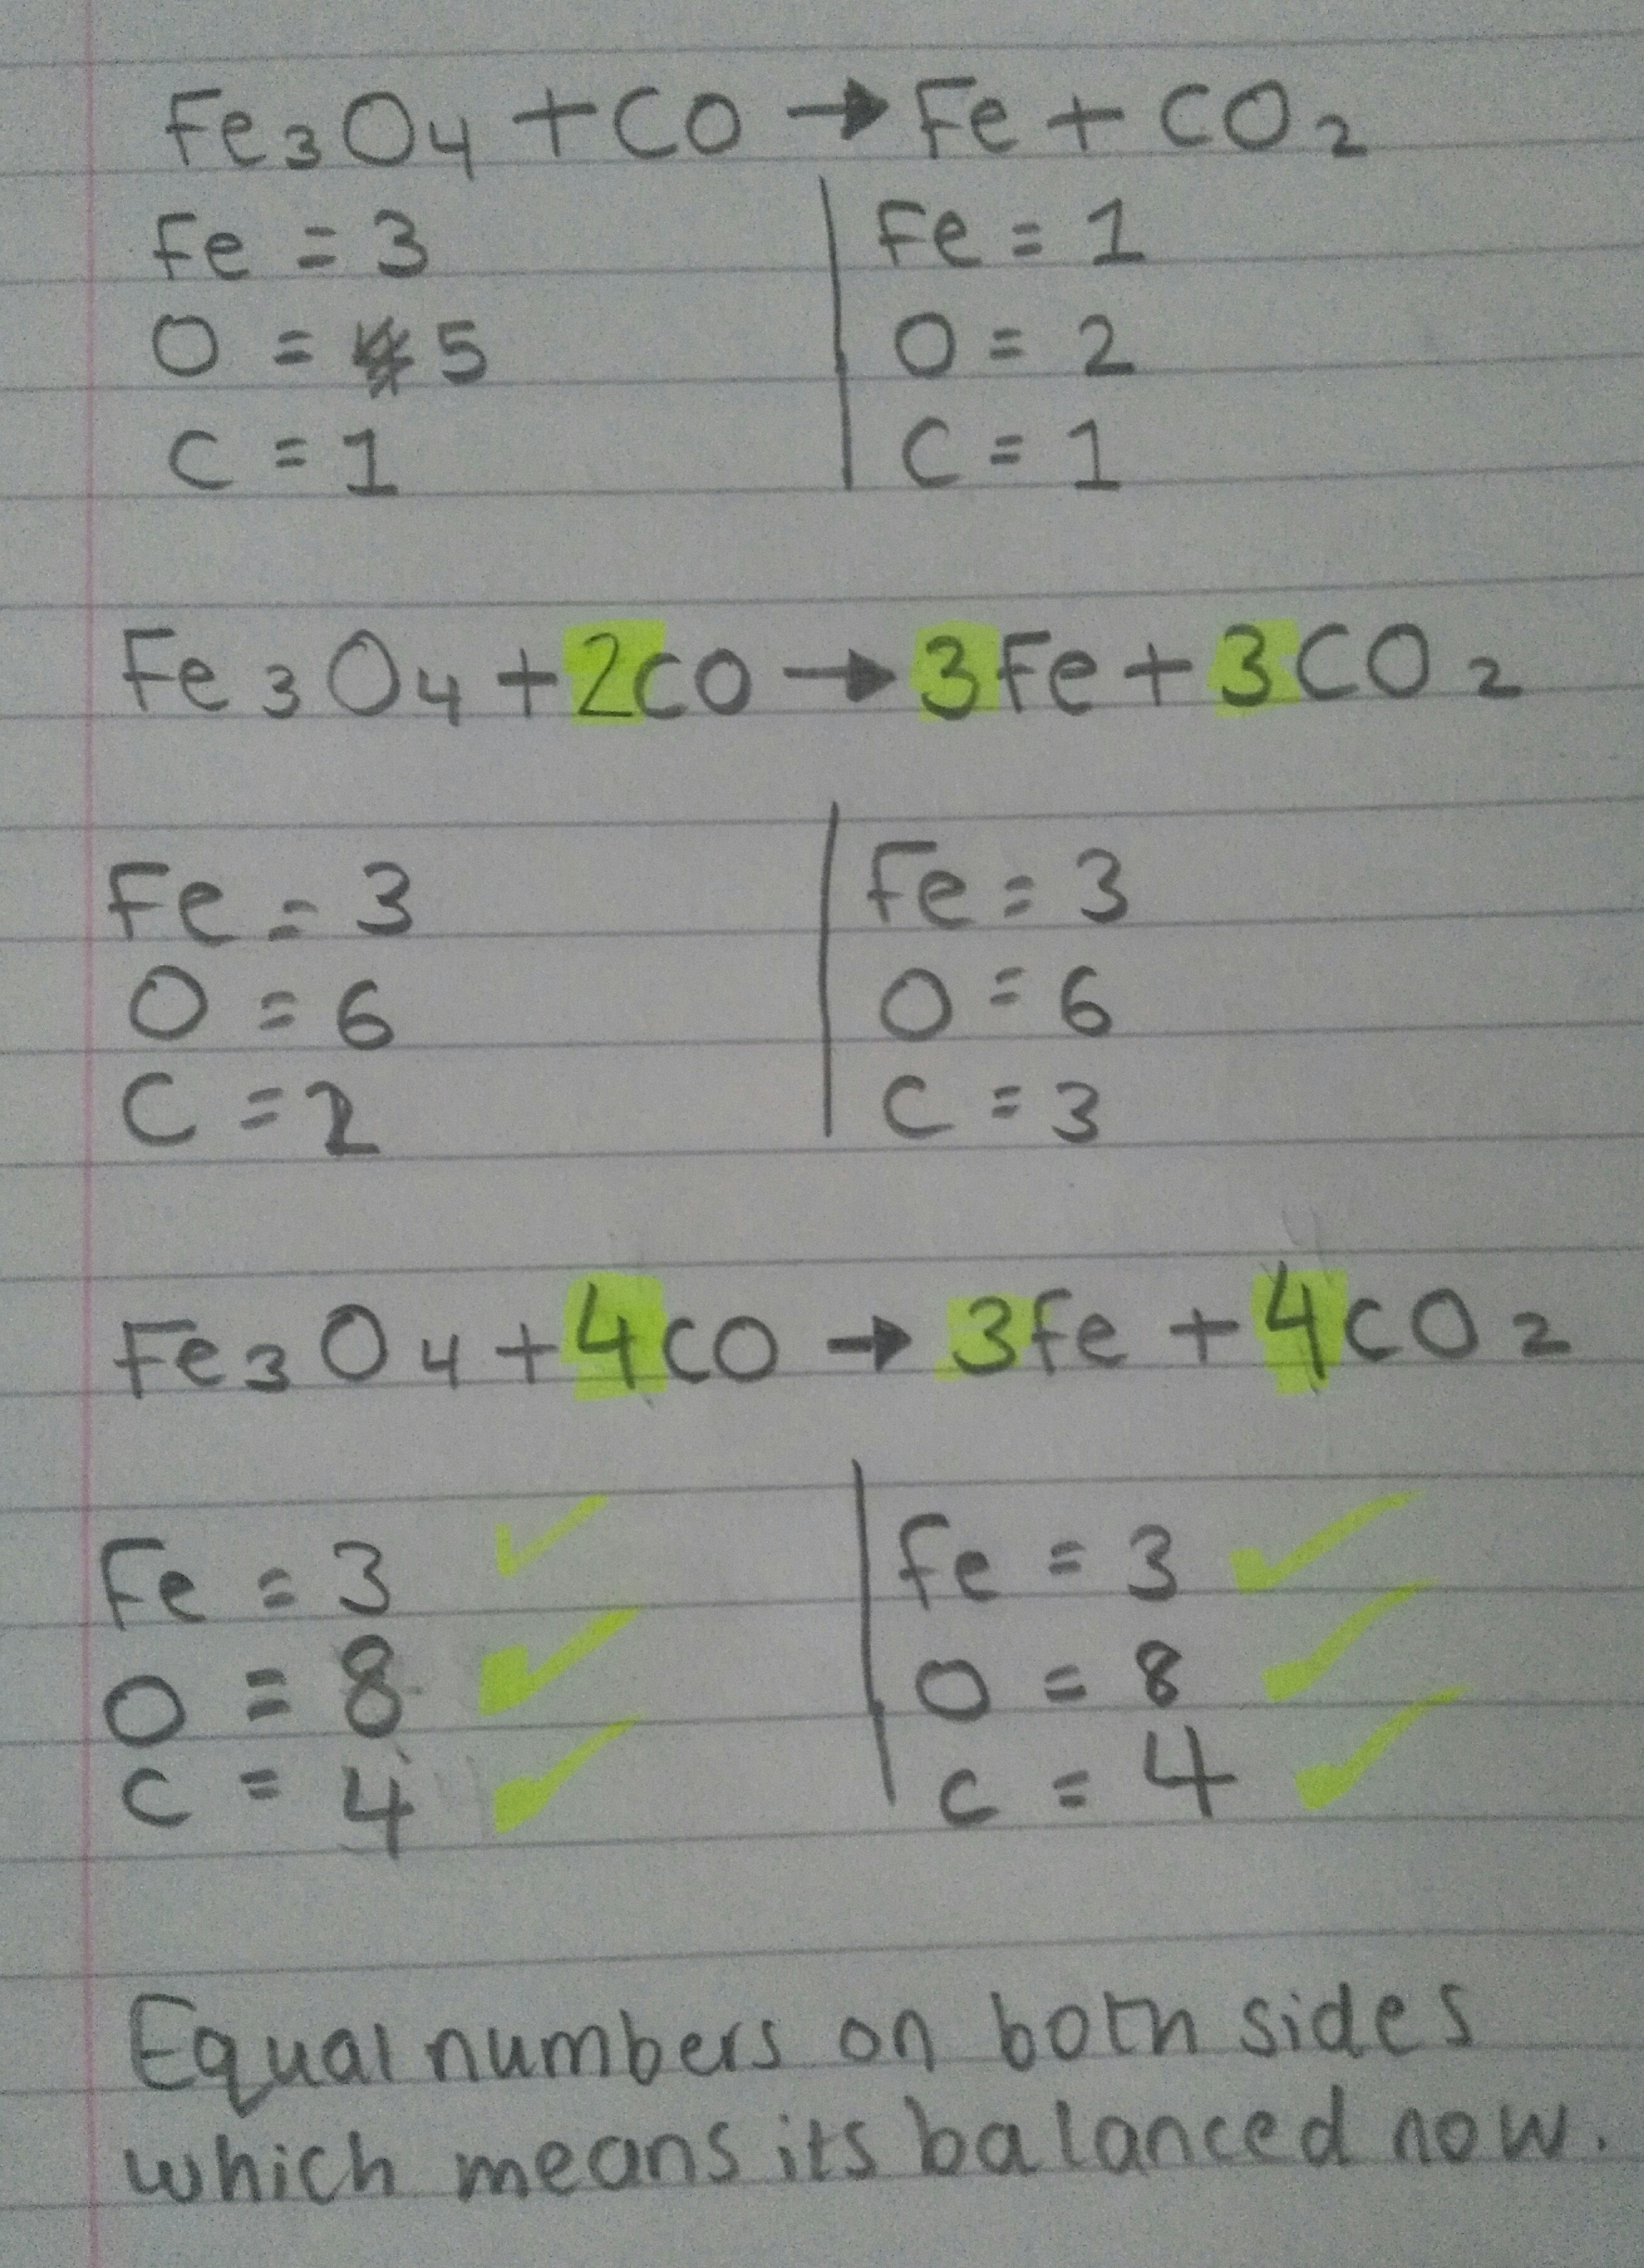 Fe₃O₄ + CO → Fe + CO₂
Fe = 3 | Fe = 1
O = 5 | O = 2
C = 1 | C = 1
Fe₃O₄ + 2CO → 3Fe + 3CO₂
Fe = 3 | Fe = 3
O = 6 | O = 6
C = 2 | C = 3
Fe₃O₄ + 4CO → 3Fe + 4CO₂
Fe = 3 ✓ | Fe = 3 ✓
O = 8 ✓ | O = 8 ✓
C = 4 ✓ | C = 4 ✓
Equal numbers on both sides
which means its balanced now.